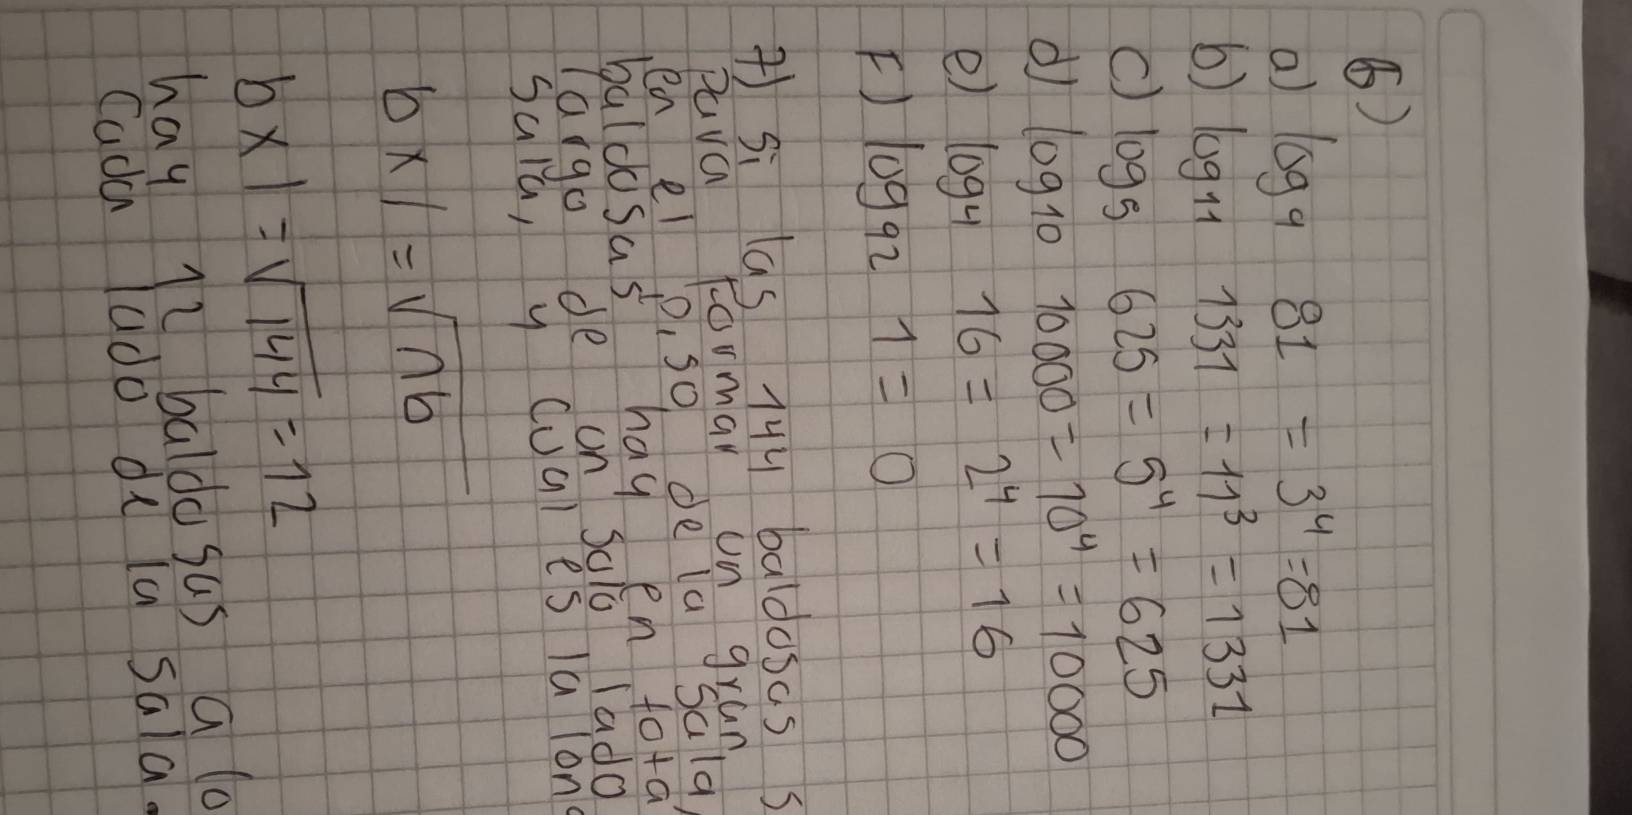 6)
a) log 9 81 = 3⁴ = 81
b) log 11 1331 = 11³ = 1331
c) log 5 625 = 5⁴ = 625
d) log 10 10000 = 10⁴ = 10000
e) log 4 16 = 2⁴ = 16
F) log 92 1 = 0
7) Si las 144 baldosas s
para formar un gran
en el p,so de la sala,
baldosas hay en tota
largo de un solo lado
sala, y cual es la long
b x l = √nb
b x l = √144 = 12
hay 12 baldosas a lo
cada lado de la sala.